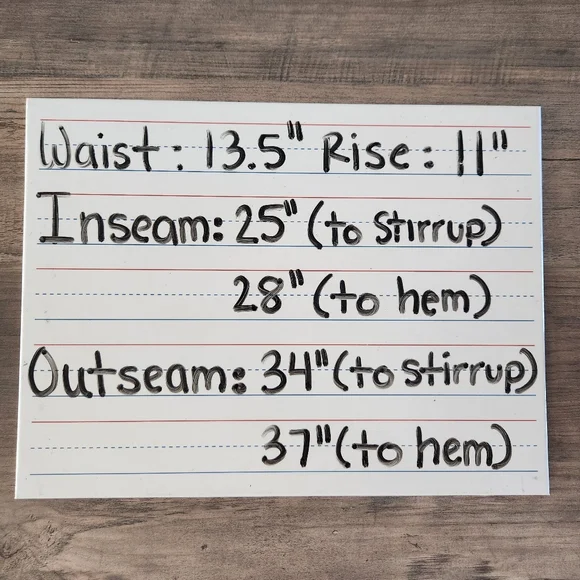 Waist: 13.5" Rise: 11"
Inseam: 25" (to stirrup)
28" (to hem)
Outseam: 34" (to stirrup)
37" (to hem)